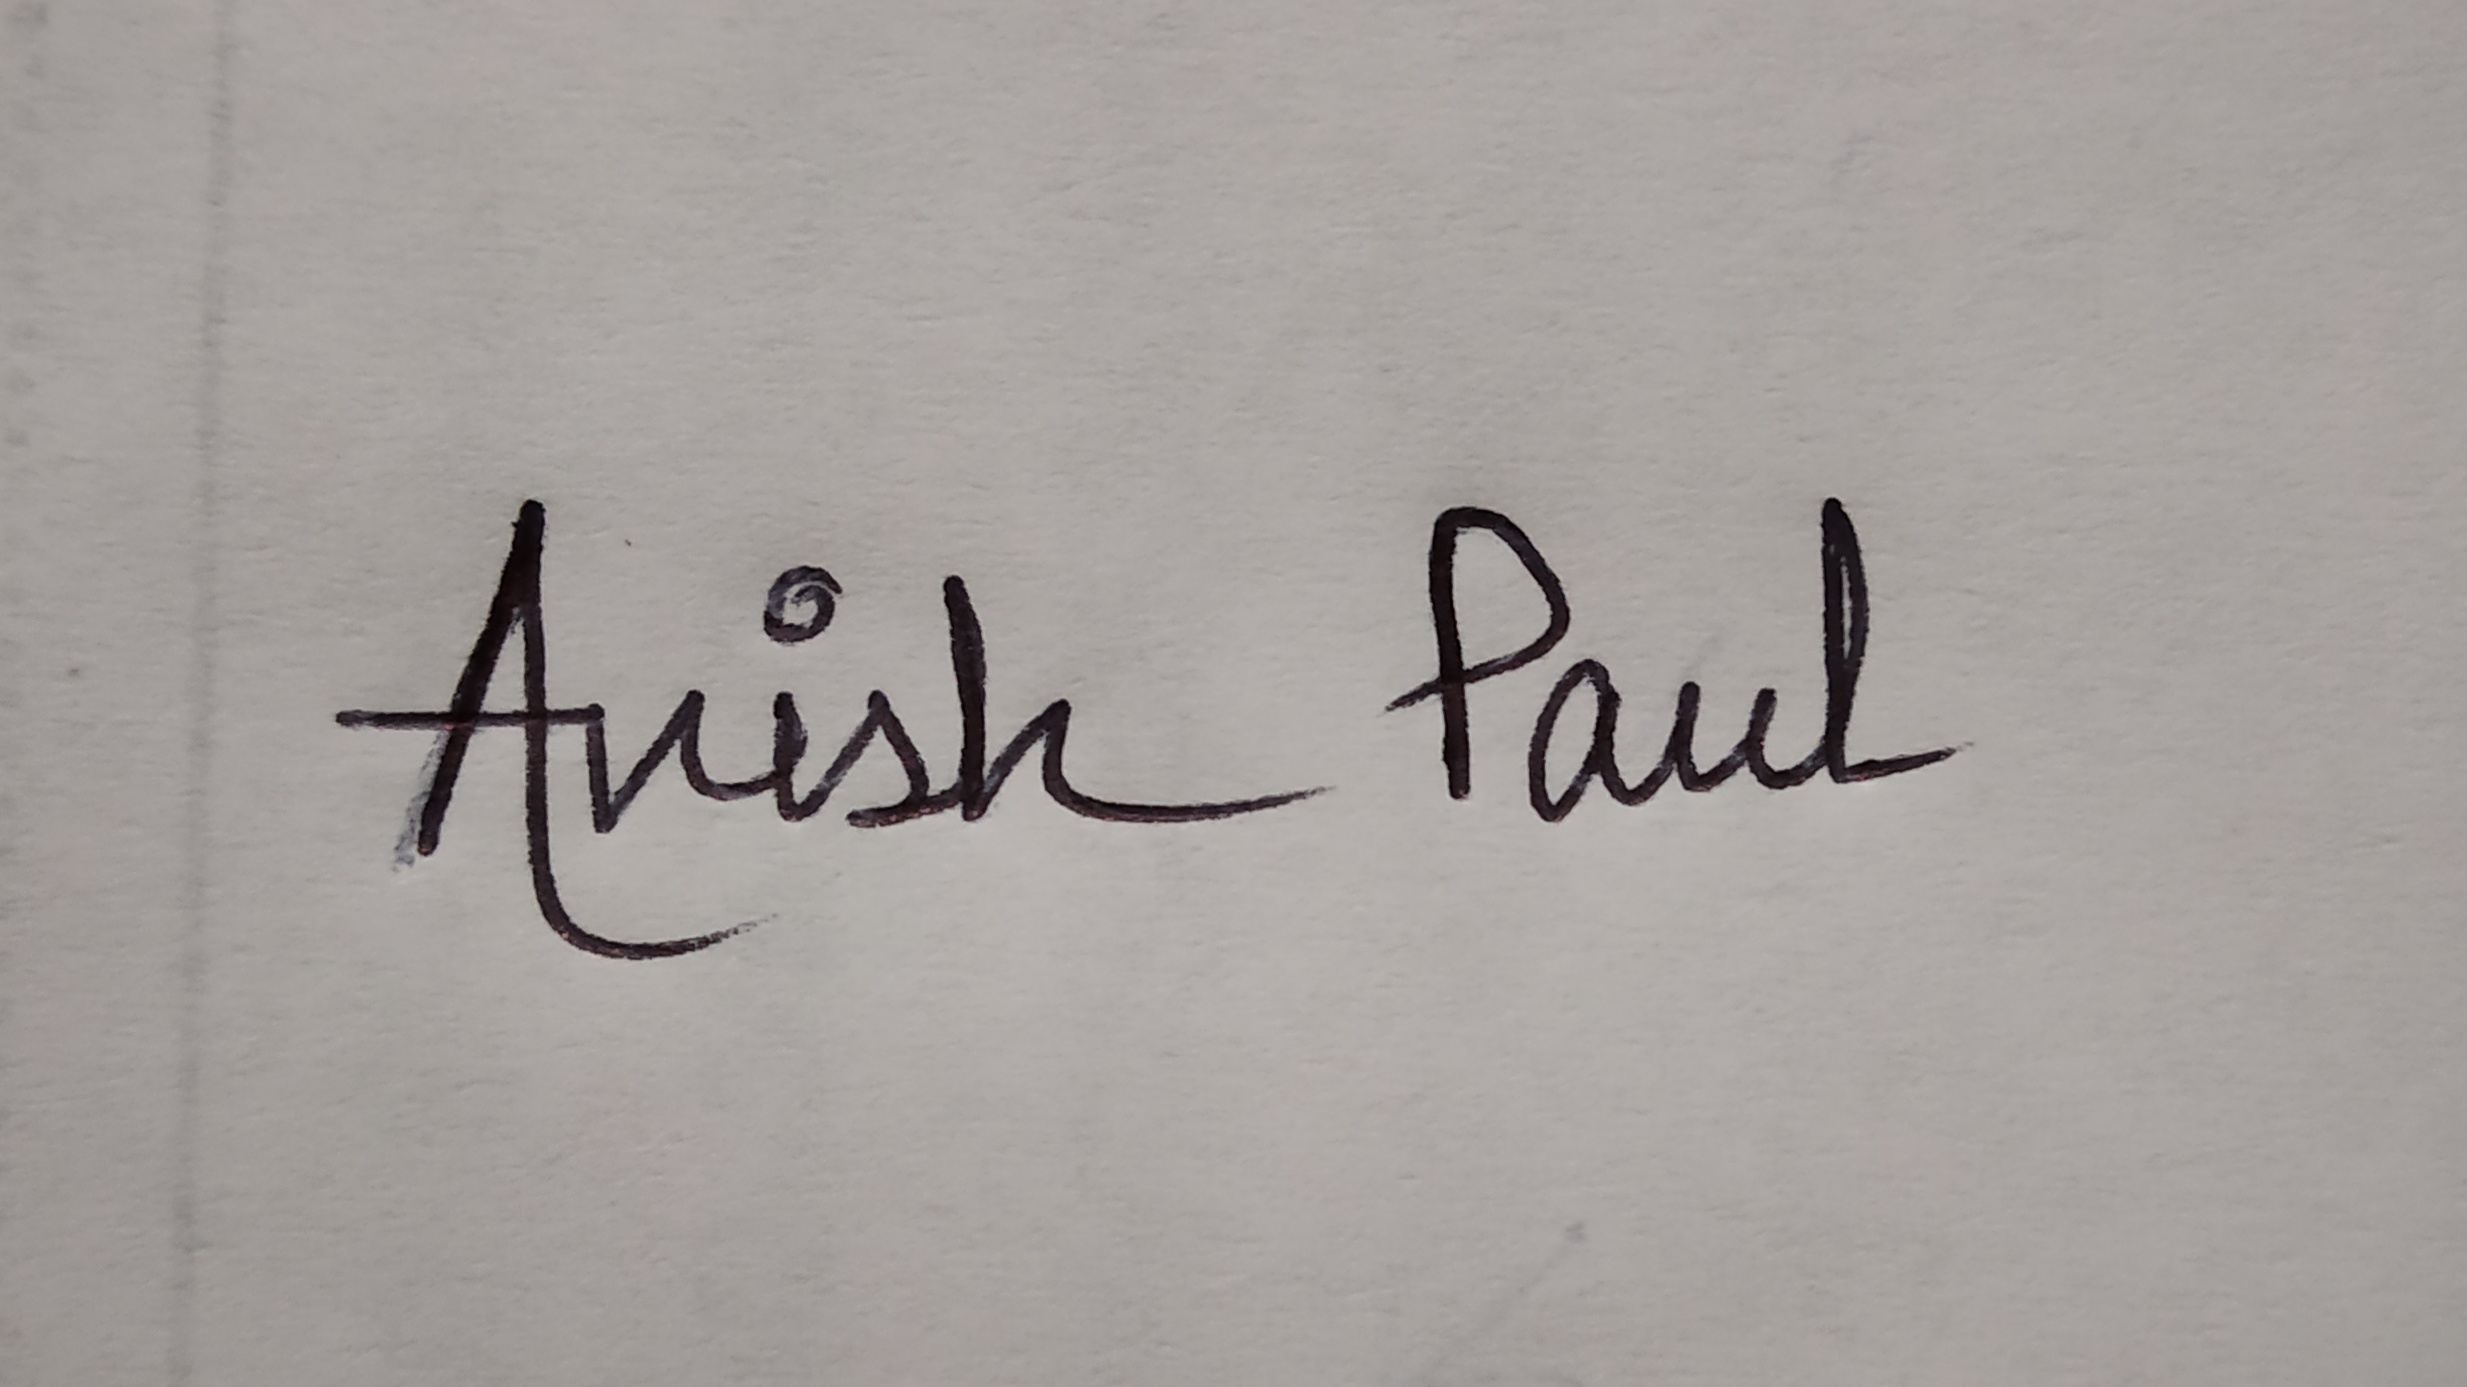 Anish Paul